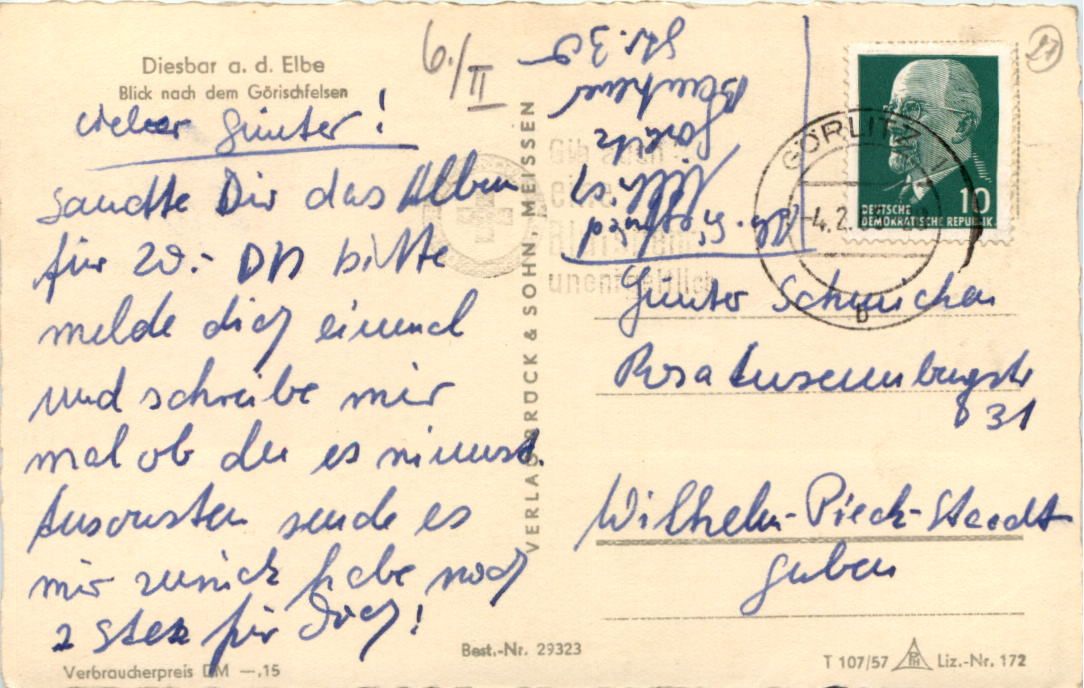 Diesbar a. d. Elbe
Blick nach dem Görischfelsen
Lieber Günter!
sandte Dir das Alben
für 20.- DM bitte
melde dich einmal
und schreibe mir
mal ob du es nimmst.
Ansonsten sende es
mir zurück habe noch
2 Stck für Dich!
Verbraucherpreis DM —,15
6./II
VERLAG BRÜCK & SOHN, MEISSEN
Best.-Nr. 29323
Abs. Siegfried
Görlitz
Str. 30
Gib auch
eine
Blutspende
unentgeltlich
GÖRLITZ 1
-4.2.
b
DEUTSCHE
DEMOKRATISCHE REPUBLIK
10
27
Günter
Rosa Luxemburgstr
31
Wilhelm-Pieck-Stadt
Guben
T 107/57
Liz.-Nr. 172